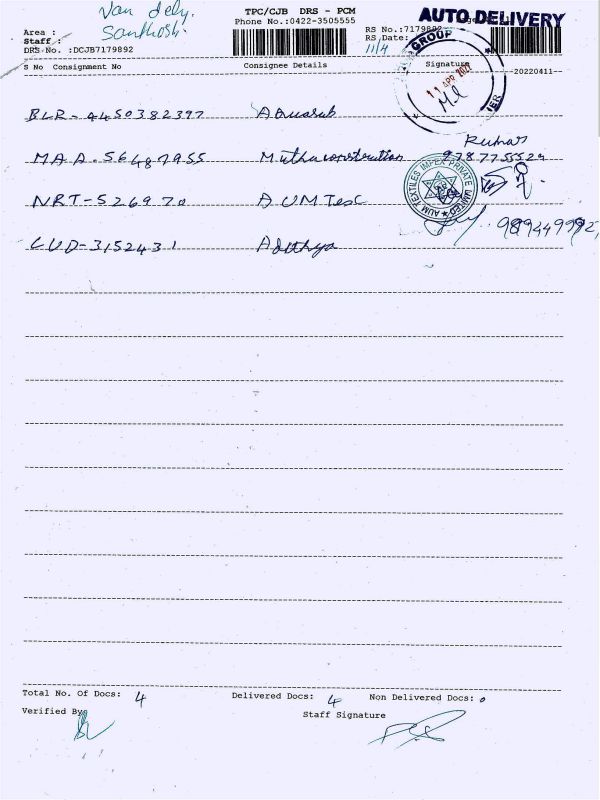 Van dely.
TPC/CJB DRS - PCM
AUTO DELIVERY
Area :
Santhosh.
Phone No.:0422-3505555
RS No.:7179892
Staff :
RS Date:
11/4
DRS No. :DCJB7179892
GROUP
S No Consignment No
Consignee Details
Signature
20220411
11 APR 2022
BLR-4450382397
MAA-56487955
Muthuconstruction
Kumar
9787755524
NRT-526970
AUM Tesc
AUM TEXTILES IMPEX PRIVATE LIMITED
LUD-3152431
Adithya
Total No. Of Docs: 4
Delivered Docs: 4
Non Delivered Docs: 0
Verified By
Staff Signature